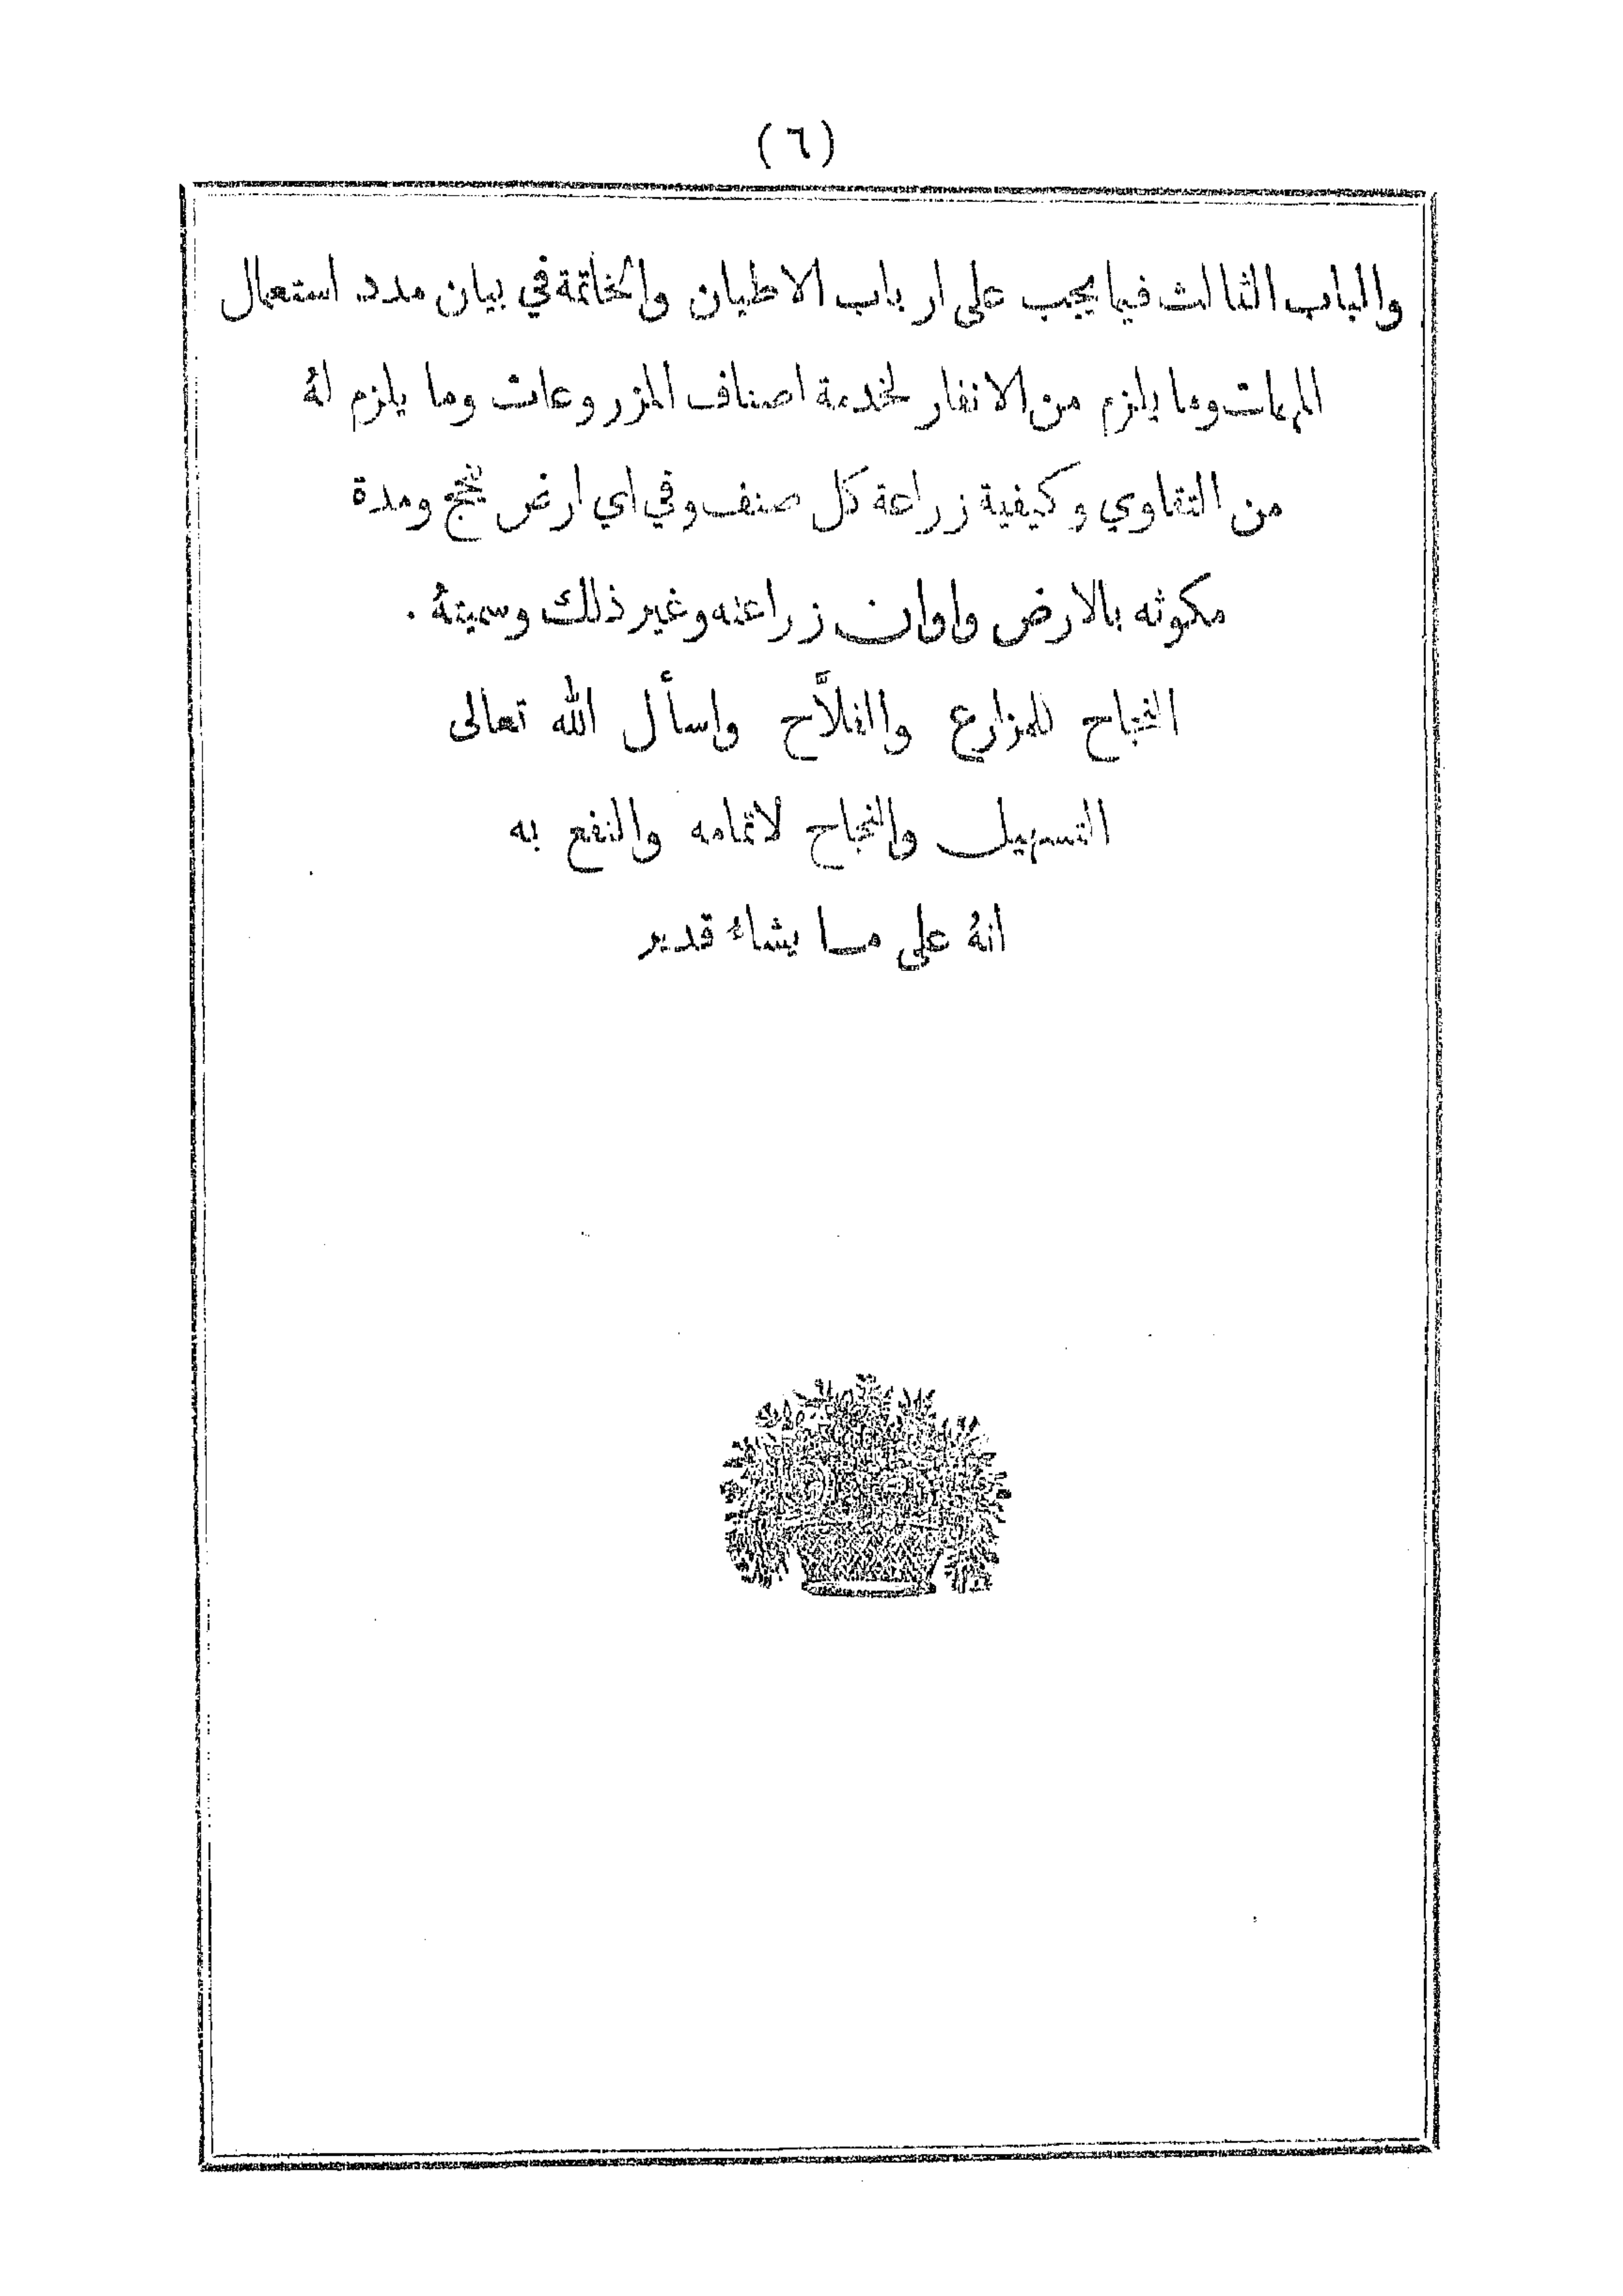 (٦)
والباب الثالث فيما يجب على ارباب الاطيان والخاتمة في بيان مدد استعمال
المهمات وما يلزم من الانفار لخدمة اصناف المزروعات وما يلزم لهُ
من التقاوي وكيفية زراعة كل صنف وفي اي ارض ينجح ومدة
مكوثه بالارض واوان زراعته وغير ذلك وسميتهُ .
النجاح للمزارع والفلاَّح واسأل الله تعالى
التسهيل والنجاح لاتمامه والنفع به
انهُ على ما يشاءُ قدير